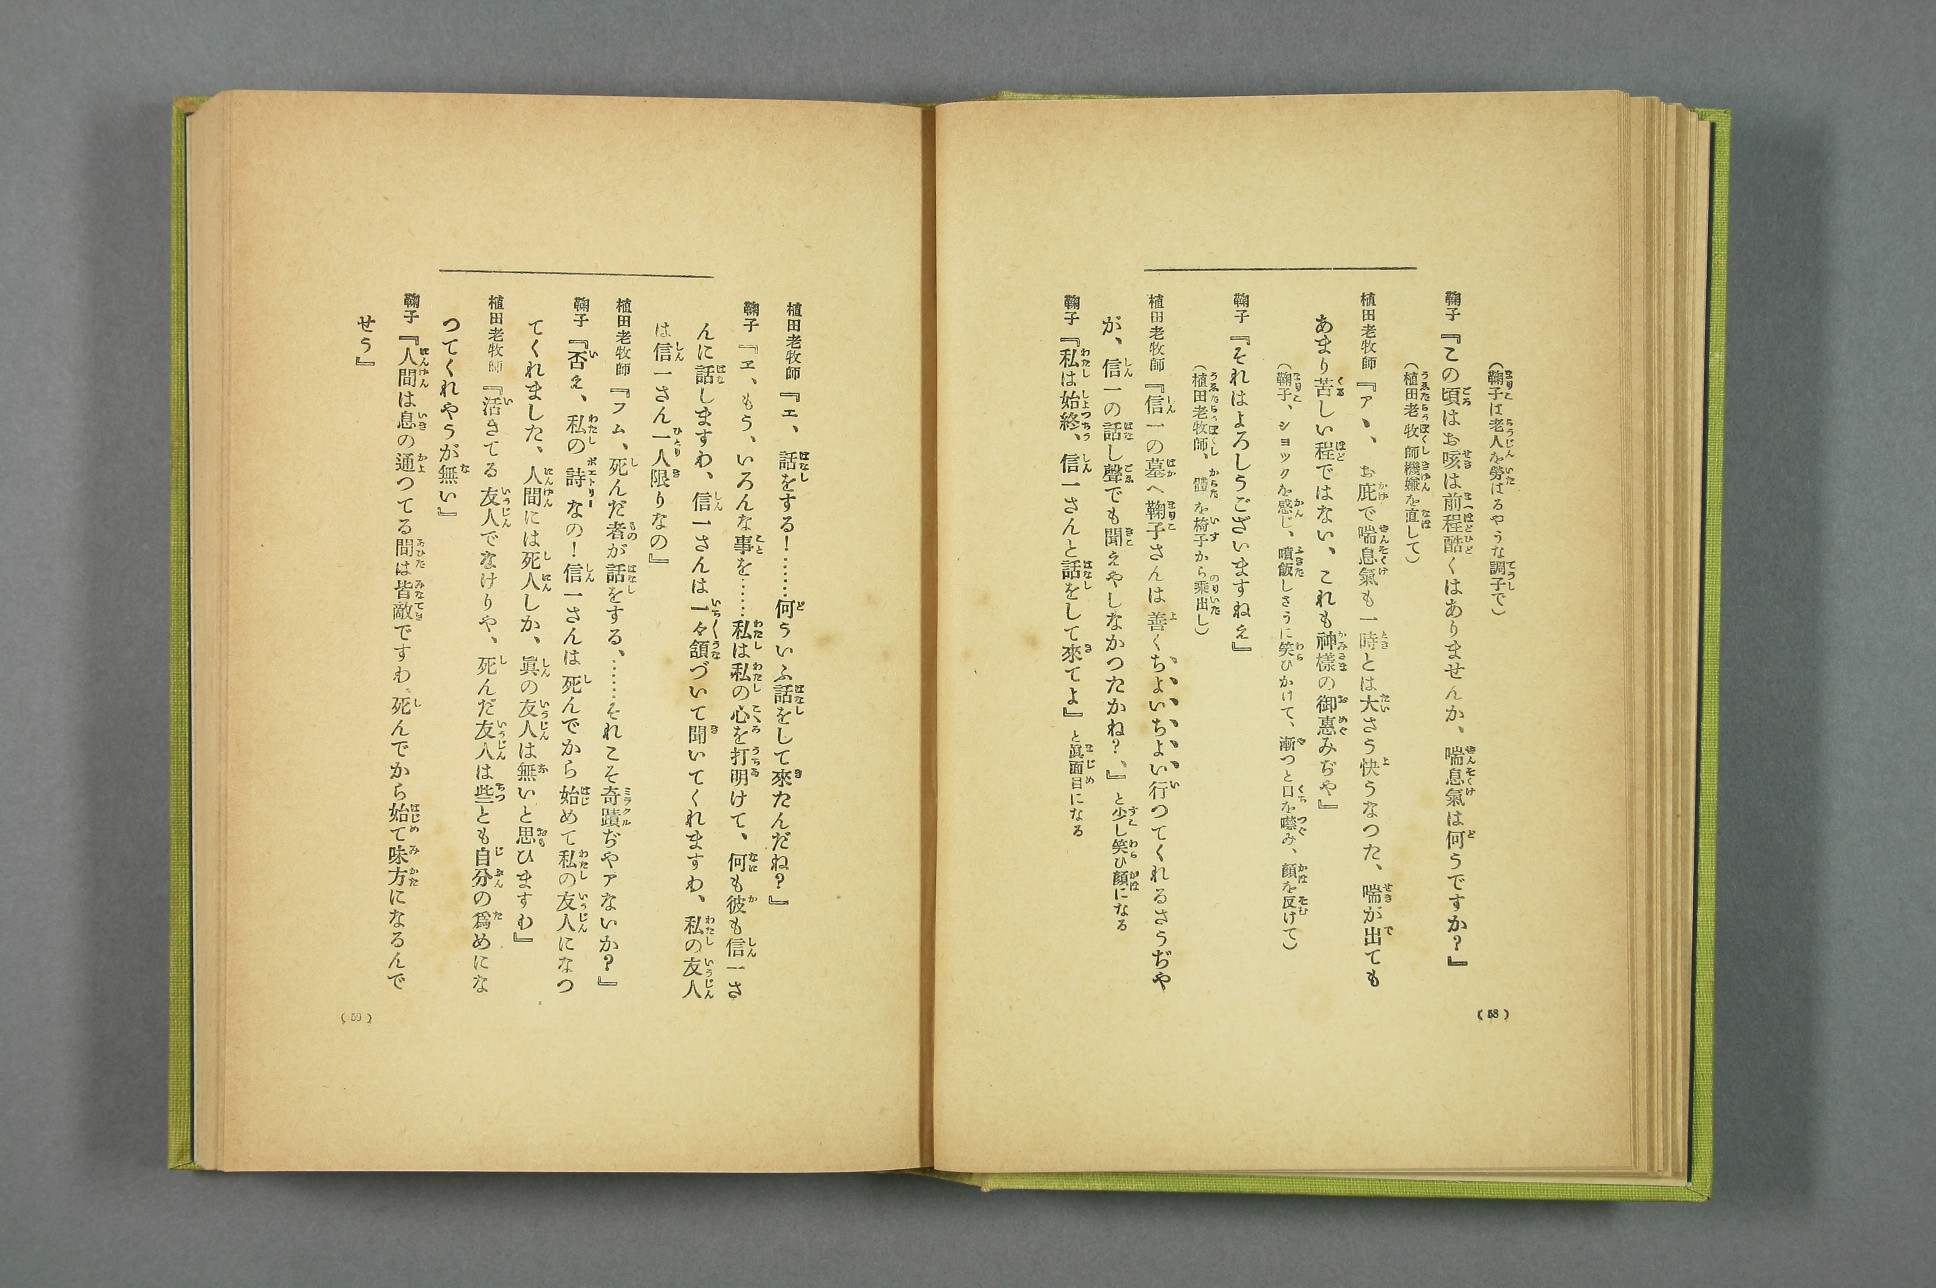 (鞠子は老人を勞はるやうな調子で)
鞠子『この頃はお咳は前程酷くはありませんか、喘息氣は何うですか?』
(植田老牧師機嫌を直して)
植田老牧師『アヽ、お庇で喘息氣も一時とは大さう快うなつた、喘が出ても
あまり苦しい程ではない、これも神樣の御惠みぢや』
(鞠子、ショックを感じ、噴飯しさうに笑ひかけて、漸つと口を噤み、顏を反けて)
鞠子『それはよろしうございますねえ』
(植田老牧師、體を椅子から乘出し)
植田老牧師『信一の墓へ鞠子さんは善くちよいちよい行つてくれるさうぢや
が、信一の話し聲でも聞えやしなかつたかね?、』と少し笑ひ顏になる
鞠子『私は始終、信一さんと話をして來てよ』と眞面目になる
(58)
植田老牧師『エ、話をする!……何ういふ話をして來たんだね?』
鞠子『ヱ、もう、いろんな事を……私は私の心を打明けて、何も彼も信一さ
んに話しますわ、信一さんは一々頷づいて聞いてくれますわ、私の友人
は信一さん一人限りなの』
植田老牧師『フム、死んだ者が話をする、……それこそ奇蹟ぢやアないか?』
鞠子『否え、私の詩なの!信一さんは死んでから始めて私の友人になつ
てくれました、人間には死人しか、眞の友人は無いと思ひますわ』
植田老牧師『活きてる友人でなけりや、死んだ友人は些とも自分の爲めにな
つてくれやうが無い』
鞠子『人間は息の通つてる間は皆敵ですわ、死んでから始て味方になるんで
せう』
(59)